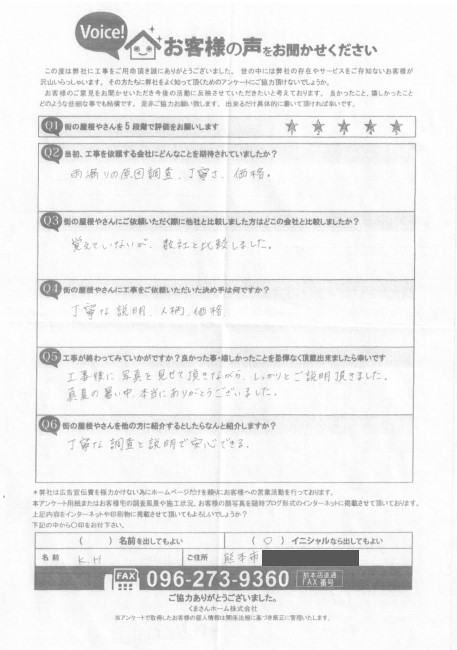 Voice!
お客様の声をお聞かせください
この度は弊社に工事をご用命頂き誠にありがとうございました。世の中には弊社の存在やサービスをご存知ないお客様が
沢山いらっしゃいます。その方たちに弊社をよく知って頂くためのアンケートにご協力頂けないでしょうか。
お客様のご意見をお聞かせいただき今後の活動に反映させていただきたいと考えております。良かったこと、嬉しかったこと
どのような些細な事でも結構です。是非ご協力お願い致します。出来るだけ具体的に書いて頂ければ幸いです。
Q1 街の屋根やさんを5段階で評価をお願いします
1 2 3 4 5
Q2 当初、工事を依頼する会社にどんなことを期待されていましたか?
雨漏りの原因調査、丁寧さ、価格。
Q3 街の屋根やさんにご依頼いただく際に他社と比較しました方はどこの会社と比較しましたか?
覚えていないが、数社と比較しました。
Q4 街の屋根やさんに工事をご依頼いただいた決め手は何ですか?
丁寧な説明、人柄、価格
Q5 工事が終わってみていかがですか?良かった事・嬉しかったことを忌憚なく頂戴出来ましたら幸いです
工事後に写真を見せて頂きながら、しっかりとご説明頂きました。
真夏の暑い中、本当にありがとうございました。
Q6 街の屋根やさんを他の方に紹介するとしたらなんと紹介しますか?
丁寧な調査と説明で安心できる。
*弊社は広告宣伝費を極力かけない為にホームページだけを頼りにお客様への営業活動を行っております。
本アンケート用紙またはお客様宅の調査風景や施工状況、お客様の顔写真を随時ブログ形式のインターネットに掲載させて頂いております。
上記内容をインターネットや印刷物に掲載させて頂いてもよろしいでしょうか?
下記の中から〇印をお付下さい。
( )名前を出してもよい (〇)イニシャルなら出してもよい
名前 K.H ご住所 熊本市
FAX 096-273-9360 熊本店直通 FAX番号
ご協力ありがとうございました。
くまさんホーム株式会社
※アンケートで取得したお客様の個人情報は関係法規に基づき厳正に管理いたします。